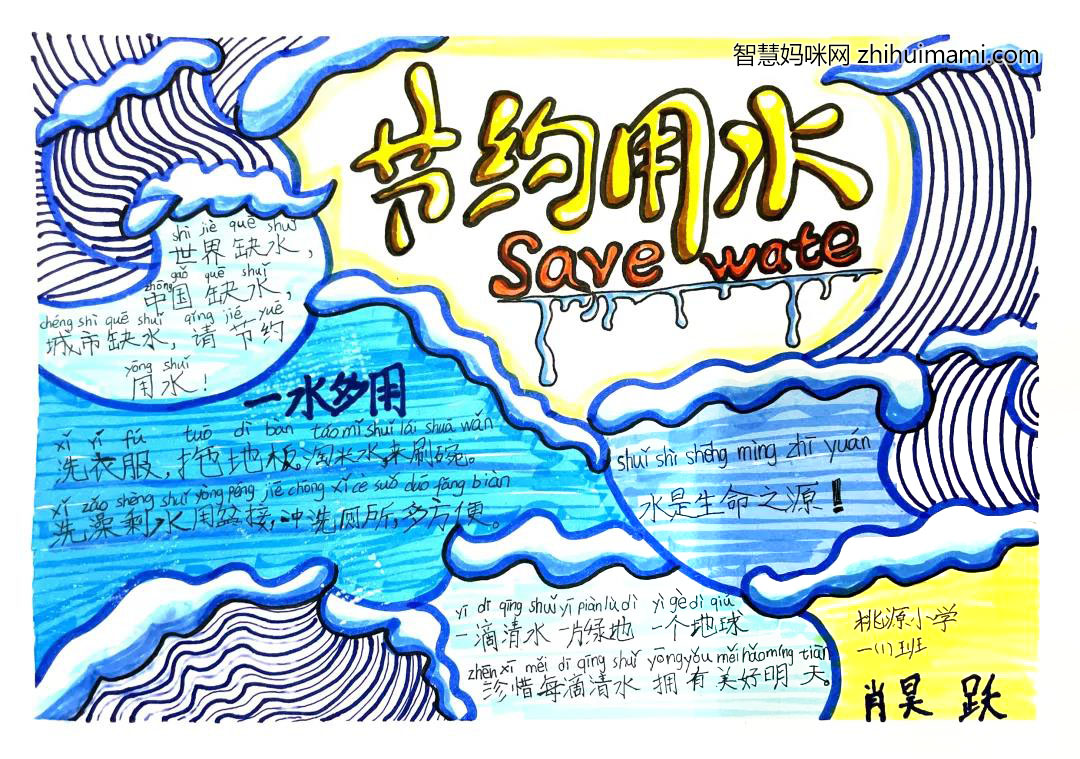 智慧妈咪网 zhihuimami.com
节约用水
Save wate
shì jiè quē shuǐ
世界缺水，
zhōng gǎo quē shuǐ
中国缺水，
chéng shì quē shuǐ qǐng jié yuē
城市缺水，请节约
yōng shuǐ
用水！
一水多用
xǐ yī fú tuō dì bàn táo mǐ shuǐ lái shuā wǎn
洗衣服，拖地板。淘米水来刷碗。
xǐ zǎo shèng shuǐ yòng pén jiē chōng xǐ cè suǒ duō fāng biàn
洗澡剩水用盆接，冲洗厕所，多方便。
shuǐ shì shēng mìng zhī yuán
水是生命之源！
yī dī qīng shuǐ yī piàn lǜ dì yī gè dì qiú
一滴清水 一片绿地 一个地球
zhēn xī měi dī qīng shuǐ yōng yǒu měi hǎo míng tiān
珍惜每滴清水 拥有美好明天。
桃源小学
一(1)班
肖昊 跃